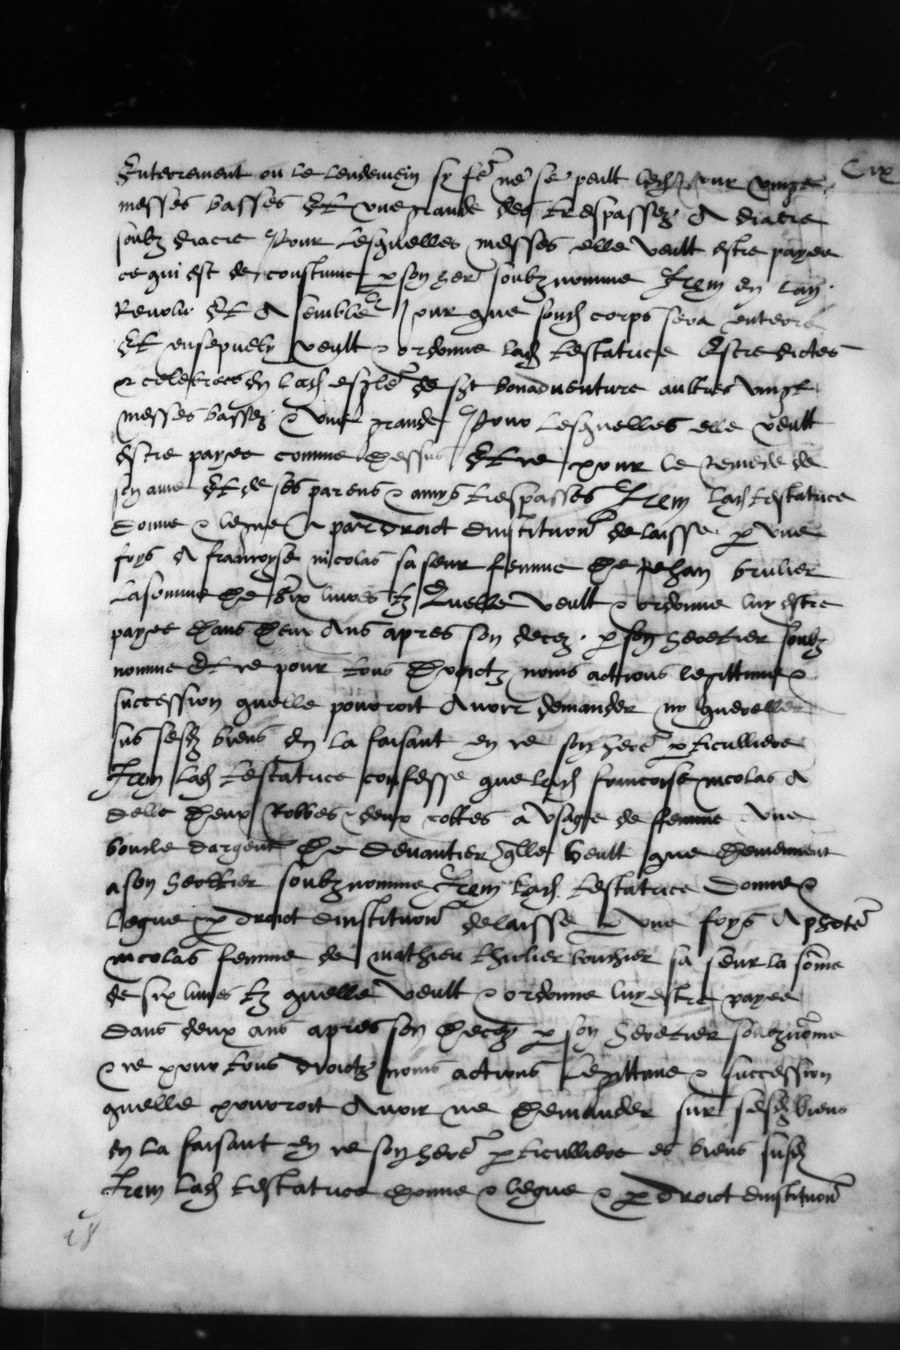 Cix
Enterrement ou le lendemain sy fe ne se peult vingt
messes basses Et une grande des trespassez A diacre
soubz diacre Pour lesquelles messes elle veult estre payee
ce qui est de coustume p son her soubz nomme Item en lan
Revolu Et A semble Jour que sond corps sera enterre
Et ensepuely veult & ordonne lad testatrice Estre dictes
& celebrees En lad esgle de st bonadventure aultres vingt
messes basses & une grande Pour lesquelles elle veult
Estre payee comme dessus Et ce pour le remede de
son ame Et de ses parens & amys trespasses Item lad testatrice
donne & legue & par droict dinstitution delaisse p une
foys A francoyse nicolas sa seur femme de Jehan brulier
La somme de six livres tz Quelle veult & ordonne luy estre
payee dans deux Ans apres son decez p son heretier soubz
nomme Et ce pour tous droictz noms actions legittime &
succession quelle pourroit Avoir demander ny quereller
sus sesd biens En la faisant en ce son here particulliere
Item lad testatrice confesse que lad francoise nicolas A
delle deux Robbes deux cottes a usaige de femme une
boucle dargent de devantier qlle veult que demeurent
a son heretier soubz nomme Item lad testatrice donne &
legue & p droict dinstitution delaisse p une foys A
nicolas femme de mathieu bouchier sa seur la some
de six livres tz quelle veult & ordonne luy estre payee
dans deux ans apres son decez p son heretier soubz nome
& ce pour tous droictz noms actions legittime & succession
quelle pourroit Avoir ne demander sur sesd biens
En la faisant en ce son here particulliere es biens susd
Item lad testatrice donne & legue & p droict dinstitution